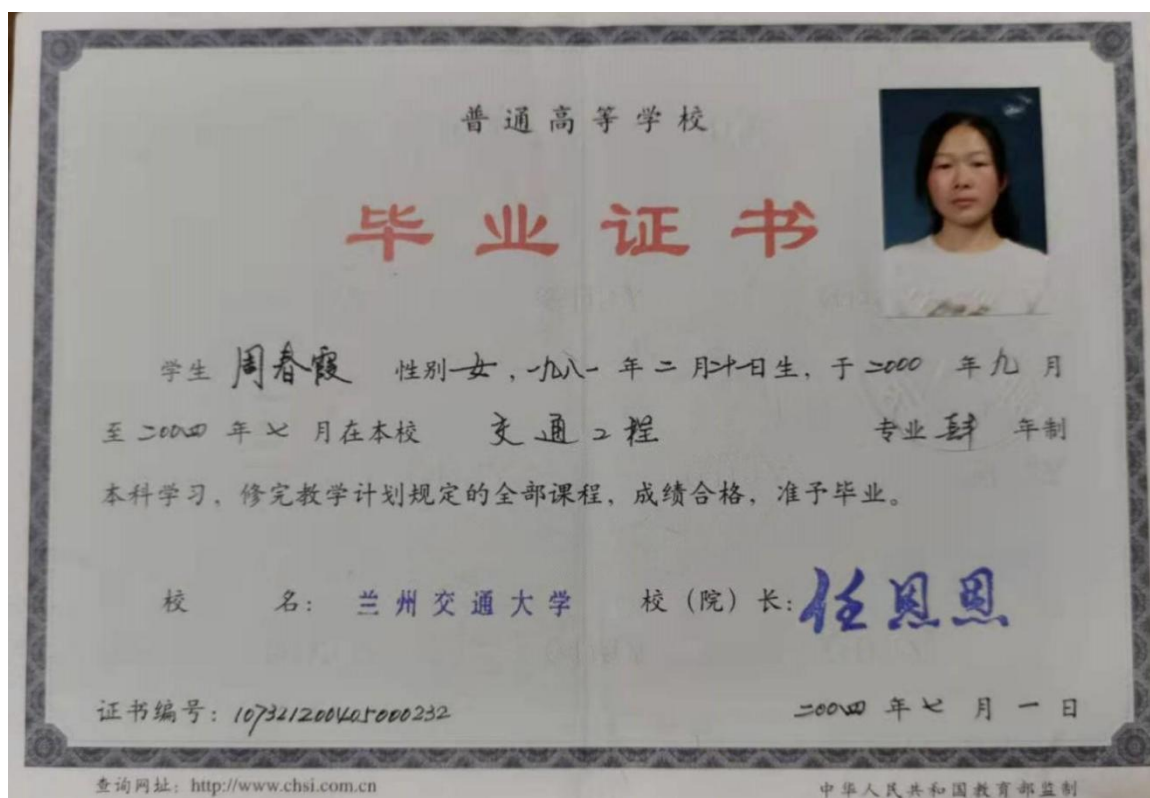 普通高等学校
毕业证书
学生 周春霞 性别 女，一九八一 年 二 月二十一日生，于 二000 年 九 月
至 二00四 年 七 月在本校 交通工程 专业 肆 年制
本科学习，修完教学计划规定的全部课程，成绩合格，准予毕业。
校 名： 兰州交通大学 校（院）长：任恩恩
证书编号：107321200405000232 二00四 年 七 月 一 日
查询网址：http://www.chsi.com.cn 中华人民共和国教育部监制